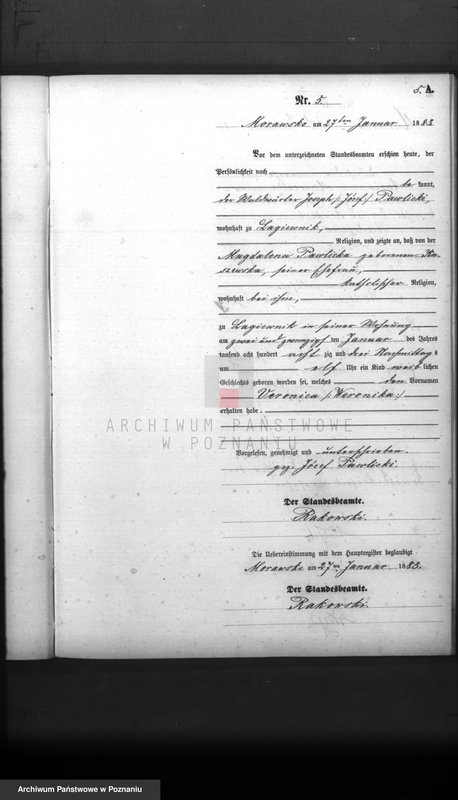 5. A.
Nr. 5.
Morawsko am 27ten Januar 1883.
Vor dem unterzeichneten Standesbeamten erschien heute, der
Persönlichkeit nach
be kannt,
der Waldwärter Joseph /: Józef :/ Pawlicki,
wohnhaft zu Lagiewnik,
Religion, und zeigte an, daß von der
Magdalena Pawlicka geborenen
szewska, seiner Ehefrau,
katholischer Religion,
wohnhaft bei ihm,
zu Lagiewnik in seiner Wohnung
am zwei und zwanzigsten Januar des Jahres
tausend acht hundert acht zig und drei Nachmittags
um elf Uhr ein Kind weib lichen
Geschlechts geboren worden sei, welches den Vornamen
Veronica /: Weronika :/
erhalten habe.
ARCHIWUM PAŃSTWOWE
W POZNANIU
Vorgelesen, genehmigt und unterschrieben.
gez. Józef Pawlicki.
Der Standesbeamte.
Rakowski.
Die Uebereinstimmung mit dem Hauptregister beglaubigt
Morawsko am 27ten Januar 1883.
Der Standesbeamte.
Rakowski.
Archiwum Państwowe w Poznaniu